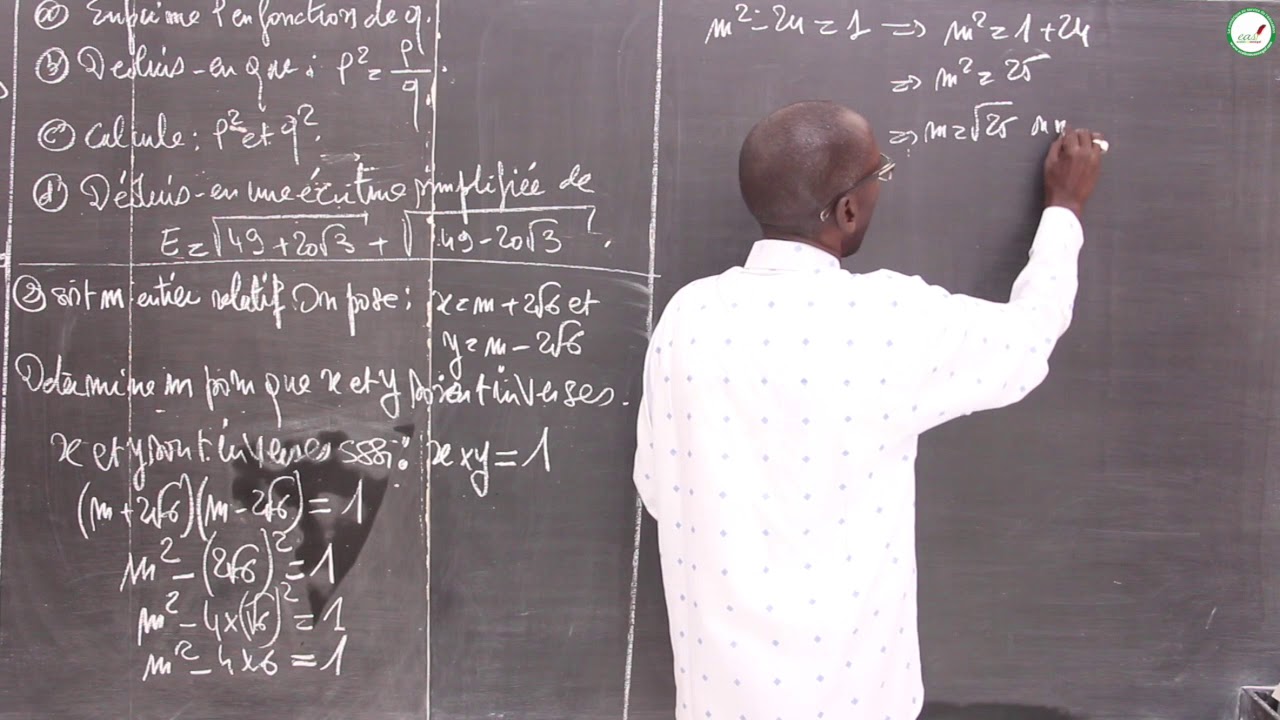 a) Exprime P en fonction de q.
b) Déduis-en que : P² = P/q.
c) Calcule : P² et q².
d) Déduis-en une écriture simplifiée de
E = √49 + 20√3 + √49 - 20√3 .
2) soit m entier relatif. On pose : x = m + 2√6 et
y = m - 2√6
Détermine m pour que x et y soient inverses.
x et y sont inverses ssi : x × y = 1
(m + 2√6)(m - 2√6) = 1
m² - (2√6)² = 1
m² - 4×(√6)² = 1
m² - 4×6 = 1
m² - 24 = 1 => m² = 1 + 24
=> m² = 25
=> m = √25
eas